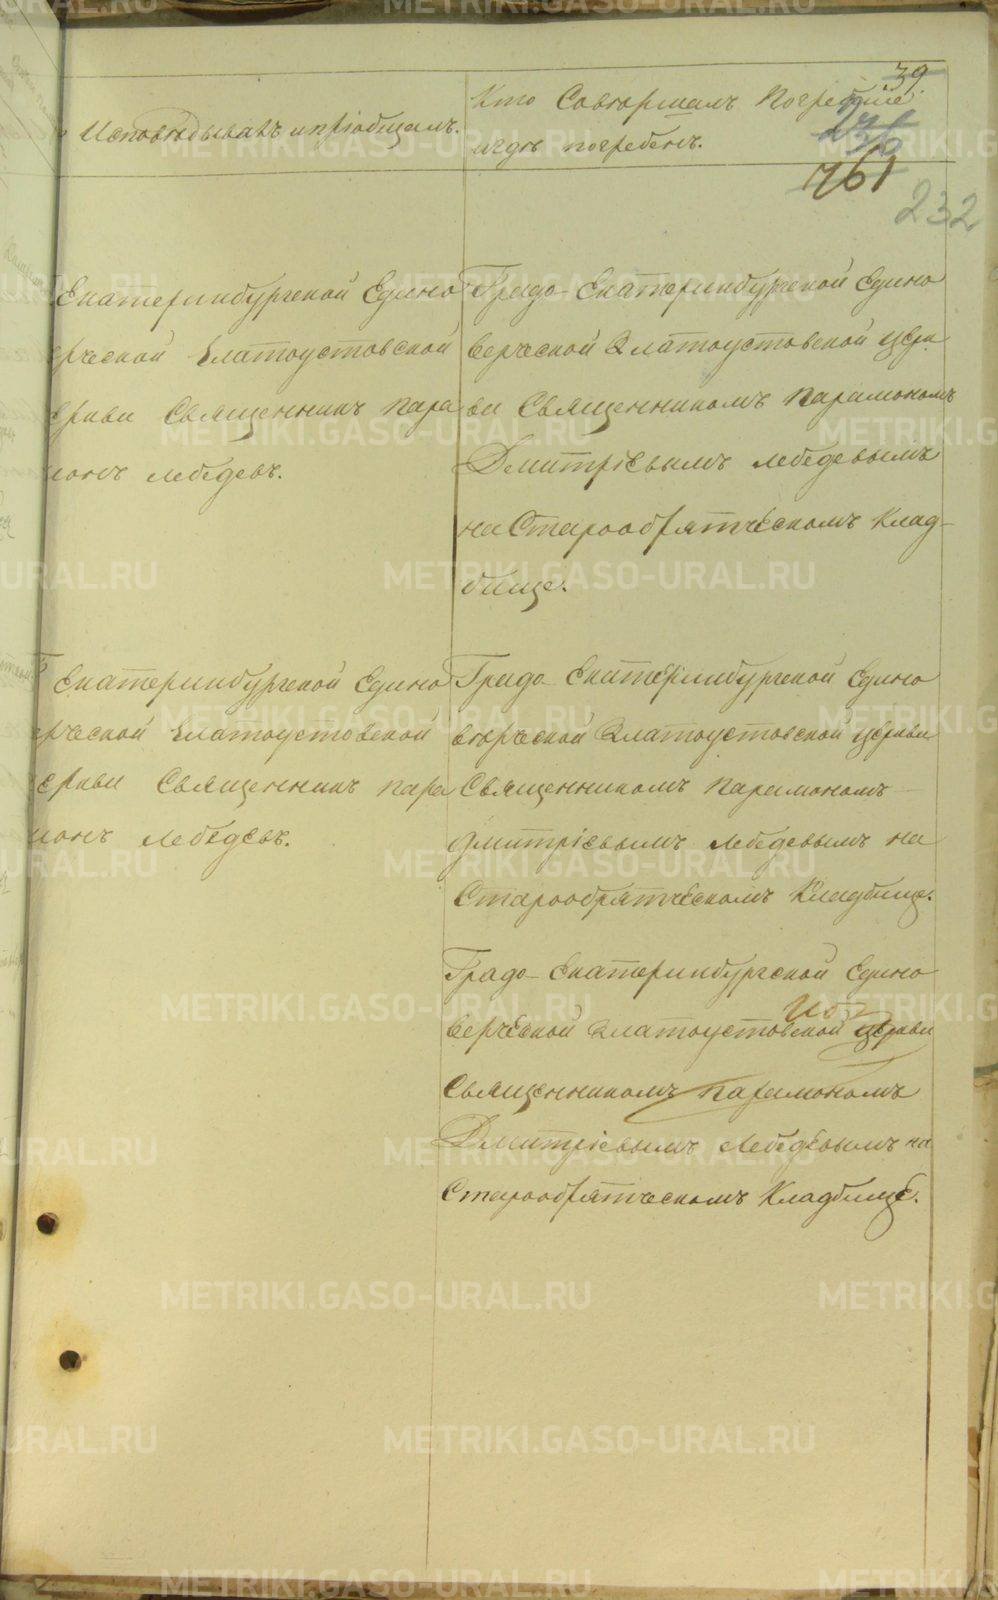 39
236
761
232
Исповѣдывалъ и пріобщалъ.
Кто Совершалъ Погребѣніе
и гдѣ погребенъ.
Екатеринбургской Едино
ерческой Златоустовской
еркви Священникъ Пара
монъ Лебедевъ.
Градо-Екатеринбургской Едино
верческой Златоустовской церк
ви Священникомъ Парамономъ
Дмитріевымъ Лебедевымъ
на Старообрятческомъ Клад-
бище.
Екатеринбургской Едино
ерческой Златоустовской
еркви Священникъ Пара
монъ Лебедевъ.
Градо-Екатерінбургской Едино
вѣрческой Златоустовской церкви
Священникомъ Парамономъ
Дмитріевымъ Лебедевымъ на
Старообрятческомъ Кладбище.
Градо-Екатеринбургской Едино
верческой Златоустовской церкви
Священникомъ Парамономъ
Дмитріевымъ Лебедевымъ на
Старообрятческомъ Кладбище.
METRIKI.GASO-URAL.RU